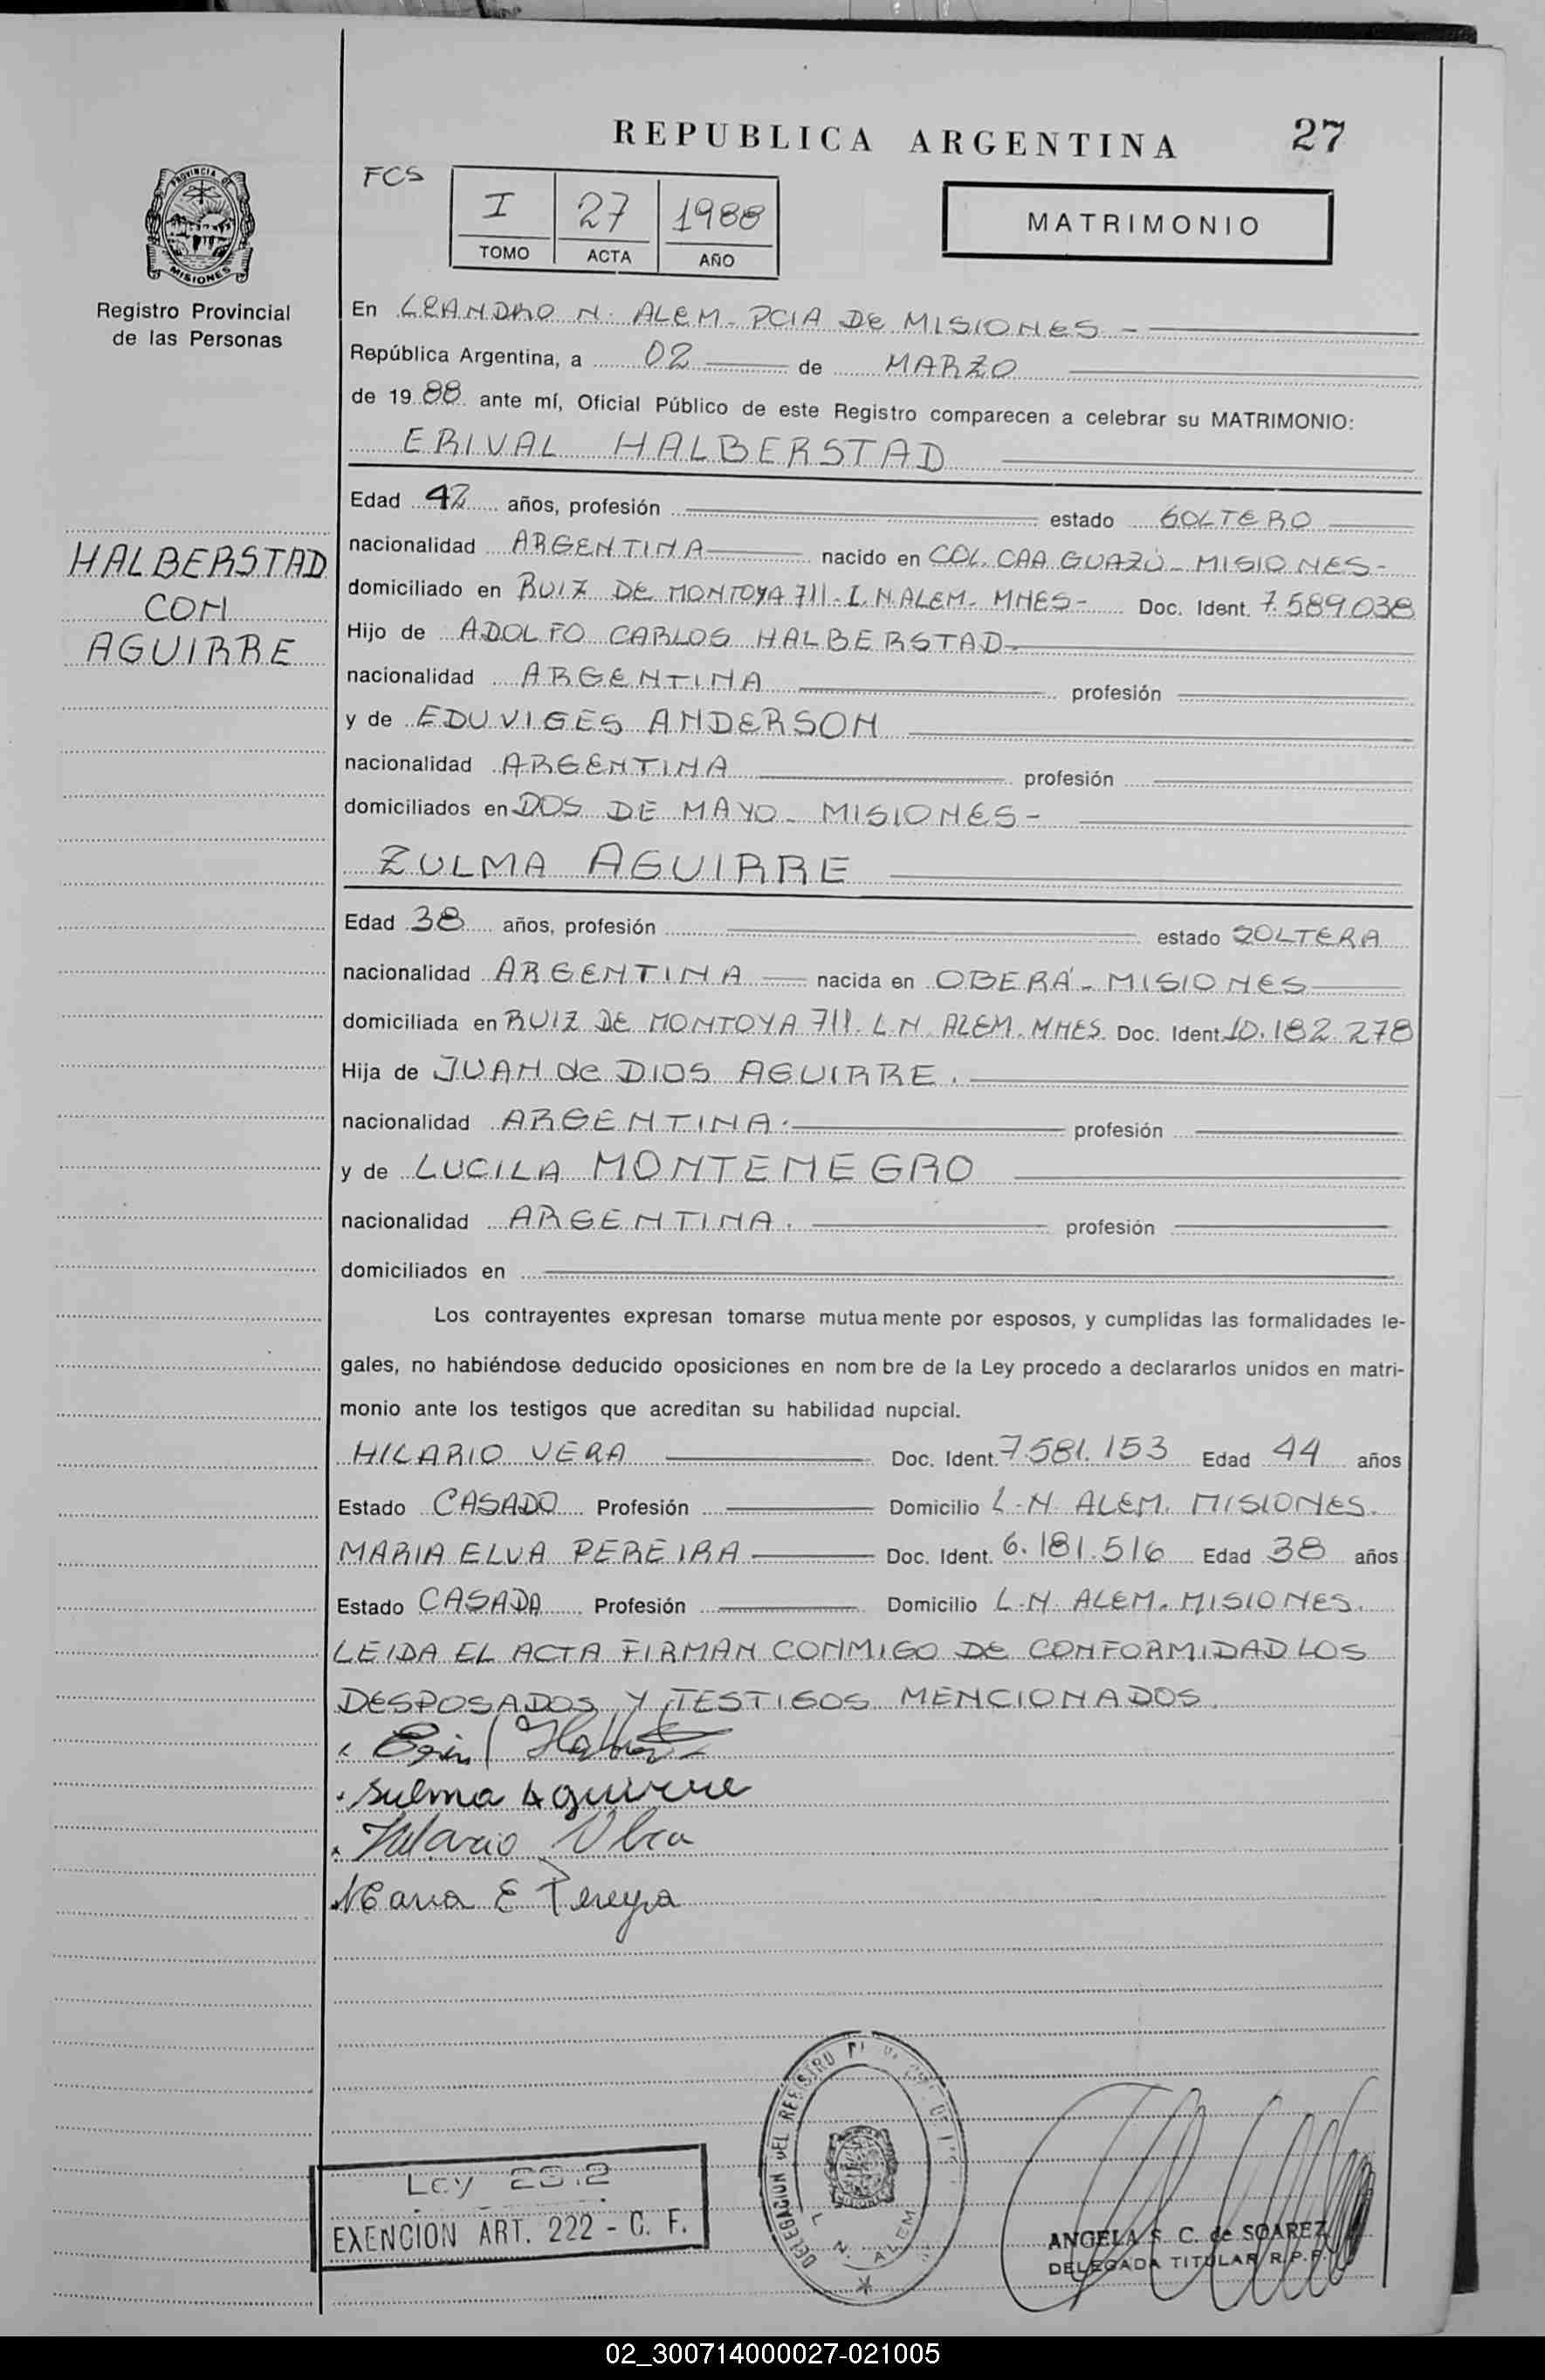 REPUBLICA ARGENTINA 27
PROVINCIA DE MISIONES
Registro Provincial
de las Personas
FCS
I 27 1988
TOMO ACTA AÑO
MATRIMONIO
En LEANDRO N. ALEM - PCIA DE MISIONES -
República Argentina, a 02 de MARZO
de 19 88 ante mí, Oficial Público de este Registro comparecen a celebrar su MATRIMONIO:
ERIVAL HALBERSTAD
Edad 42 años, profesión estado SOLTERO
HALBERSTAD
CON
AGUIRRE
nacionalidad ARGENTINA nacido en COL. CAA GUAZÚ - MISIONES -
domiciliado en RUIZ DE MONTOYA 711 - L.N.ALEM - MNES - Doc. Ident. 7.589.038
Hijo de ADOLFO CARLOS HALBERSTAD.
nacionalidad ARGENTINA profesión
y de EDUVIGES ANDERSON
nacionalidad ARGENTINA profesión
domiciliados en DOS DE MAYO - MISIONES -
ZULMA AGUIRRE
Edad 38 años, profesión estado SOLTERA
nacionalidad ARGENTINA nacida en OBERÁ - MISIONES
domiciliada en RUIZ DE MONTOYA 711. L N. ALEM. MNES. Doc. Ident. 10.182.278
Hija de JUAN de DIOS AGUIRRE.
nacionalidad ARGENTINA. profesión
y de LUCILA MONTENEGRO
nacionalidad ARGENTINA. profesión
domiciliados en
Los contrayentes expresan tomarse mutuamente por esposos, y cumplidas las formalidades le-
gales, no habiéndose deducido oposiciones en nombre de la Ley procedo a declararlos unidos en matri-
monio ante los testigos que acreditan su habilidad nupcial.
HILARIO VERA Doc. Ident. 7.581.153 Edad 44 años
Estado CASADO Profesión Domicilio L.N. ALEM. MISIONES.
MARIA ELVA PEREIRA Doc. Ident. 6.181.516 Edad 38 años
Estado CASADA Profesión Domicilio L.N. ALEM. MISIONES.
LEIDA EL ACTA FIRMAN CONMIGO DE CONFORMIDAD LOS
DESPOSADOS Y TESTIGOS MENCIONADOS.
Sulma Aguirre
Hilario Vera
Maria E Pereyra
DELEGACION DEL REGISTRO
L. N. ALEM
Ley
EXENCION ART. 222 - C. F.
ANGELA S. C. de SOAREZ
DELEGADA TITULAR R.P.P.
02_300714000027-021005